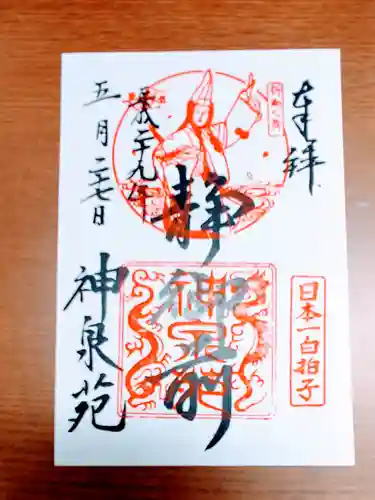 奉拝
日本一白拍子
静御前
平成二十九年
五月二七日
神泉苑